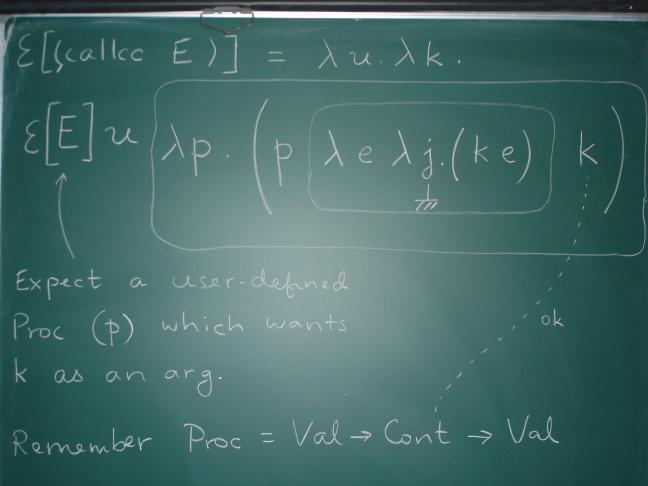 ℰ[(callcc E)] = λu.λk.
ℰ[E]u λp.(p λe.λj.(k e) k)
Expect a user-defined
Proc (p) which wants
ok
k as an arg.
Remember Proc = Val → Cont → Val